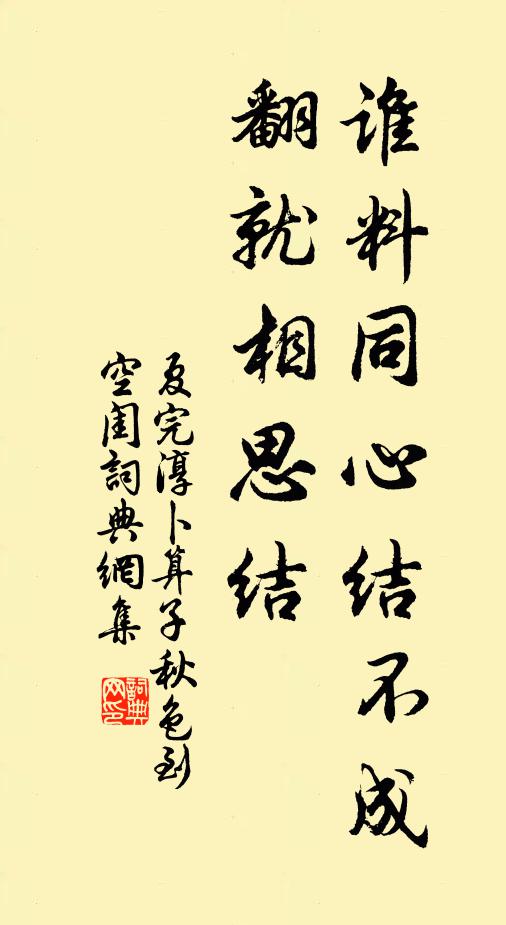 谁料同心结不成
翻就相思结
夏完淳卜算子秋色到
空闺詞典網集
詞典
网印